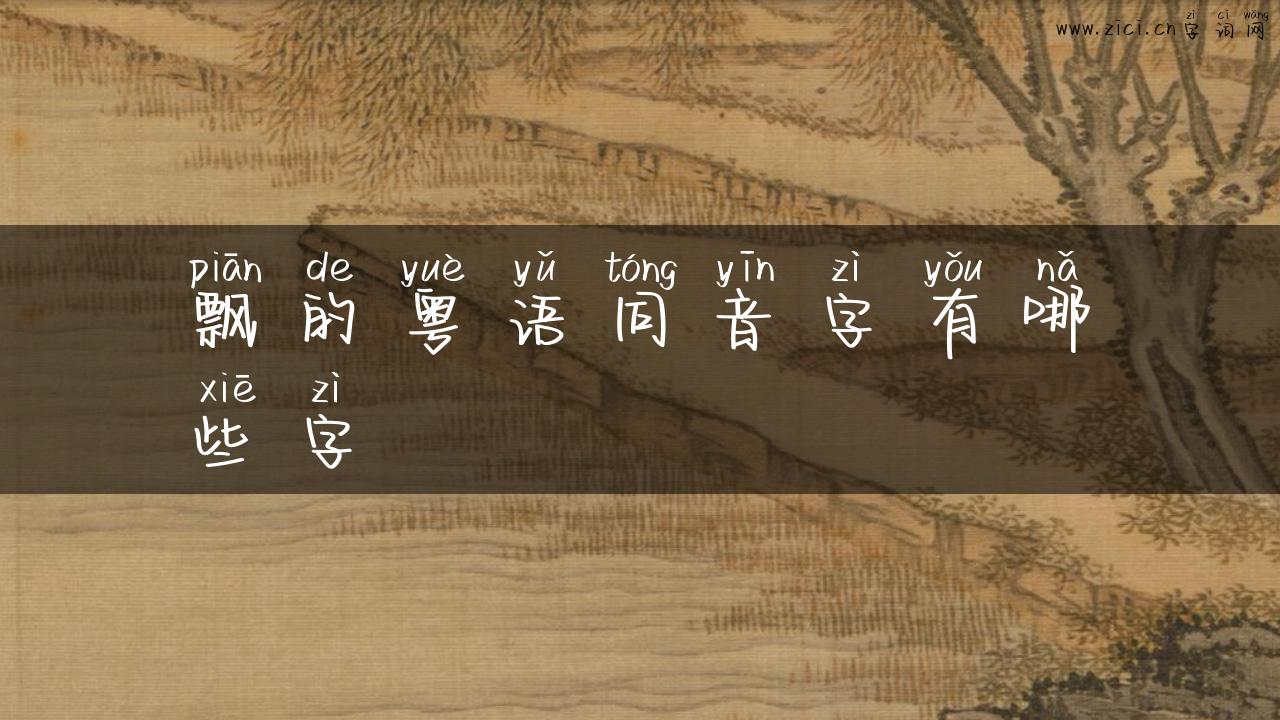 zì cí wǎng
www.zici.cn字词网
piān de yuè yǔ tóng yīn zì yǒu nǎ
飘的粤语同音字有哪
xiē zì
些字